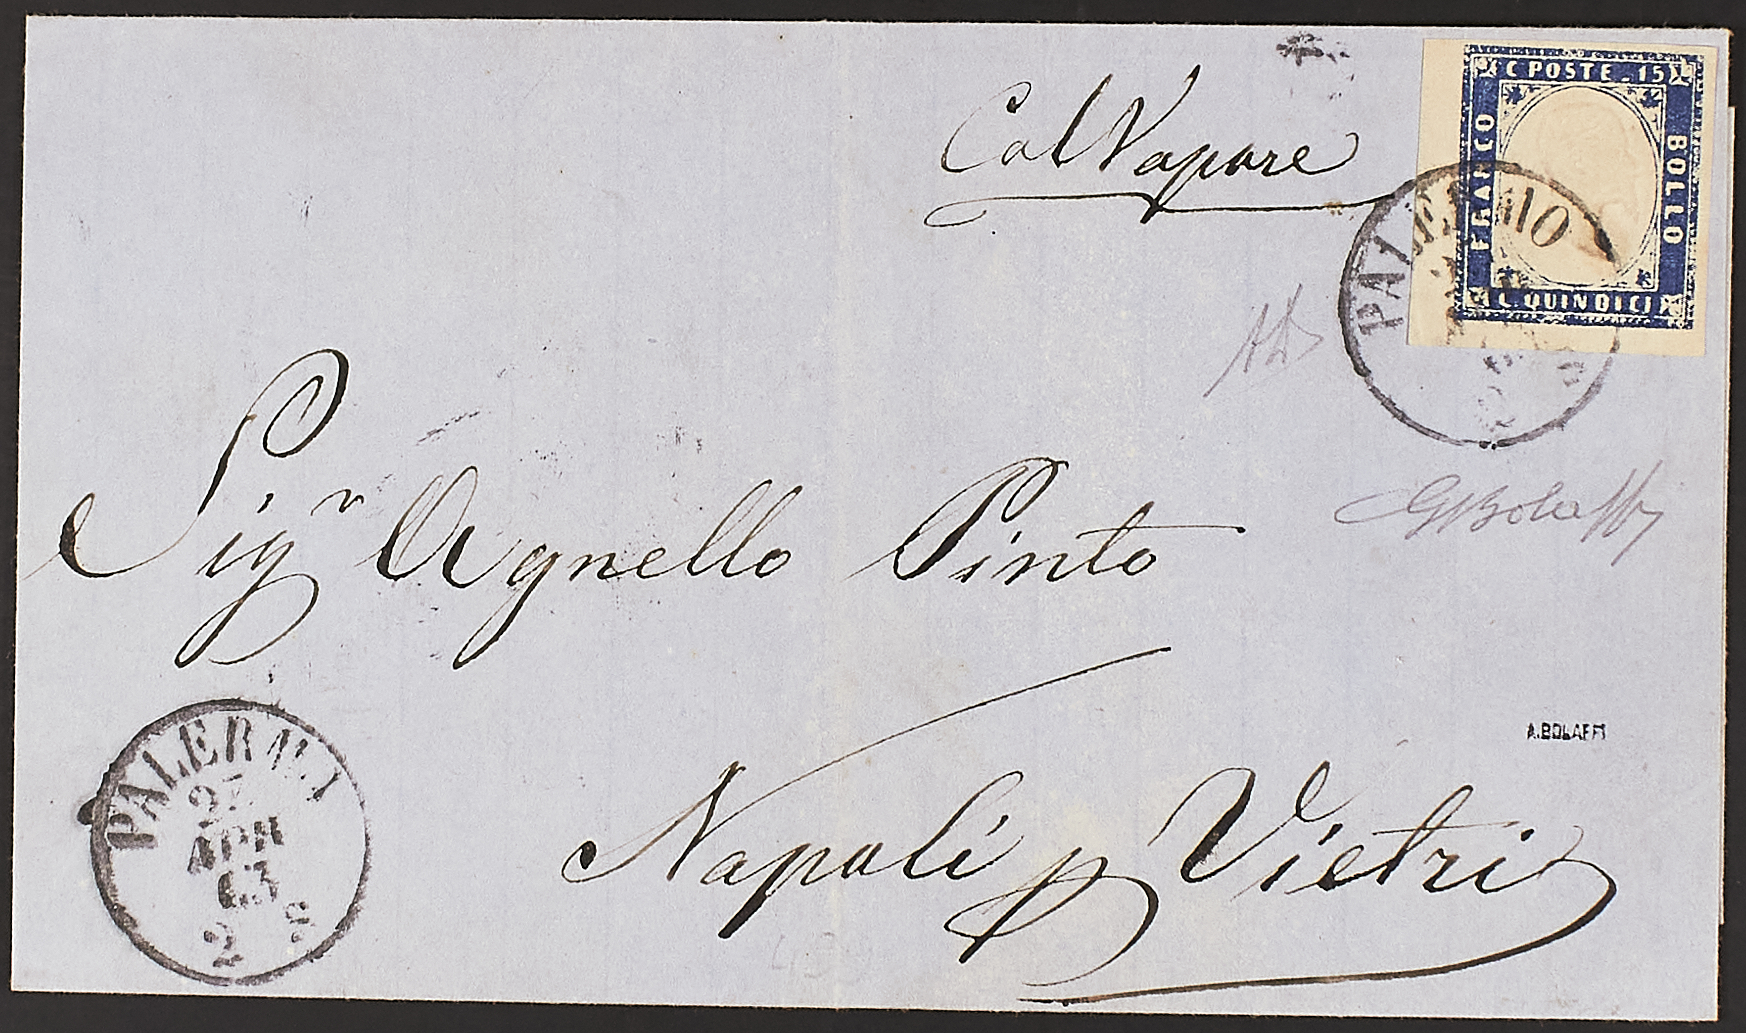 C POSTE. 15
FRANCO
BOLLO
C. QUINDICI
Col Vapore
PALERMO
GBolaffi
Sigr Agnello Pinto
A.BOLAFFI
Napoli p Vietri
PALERMO
APR
63
2 S